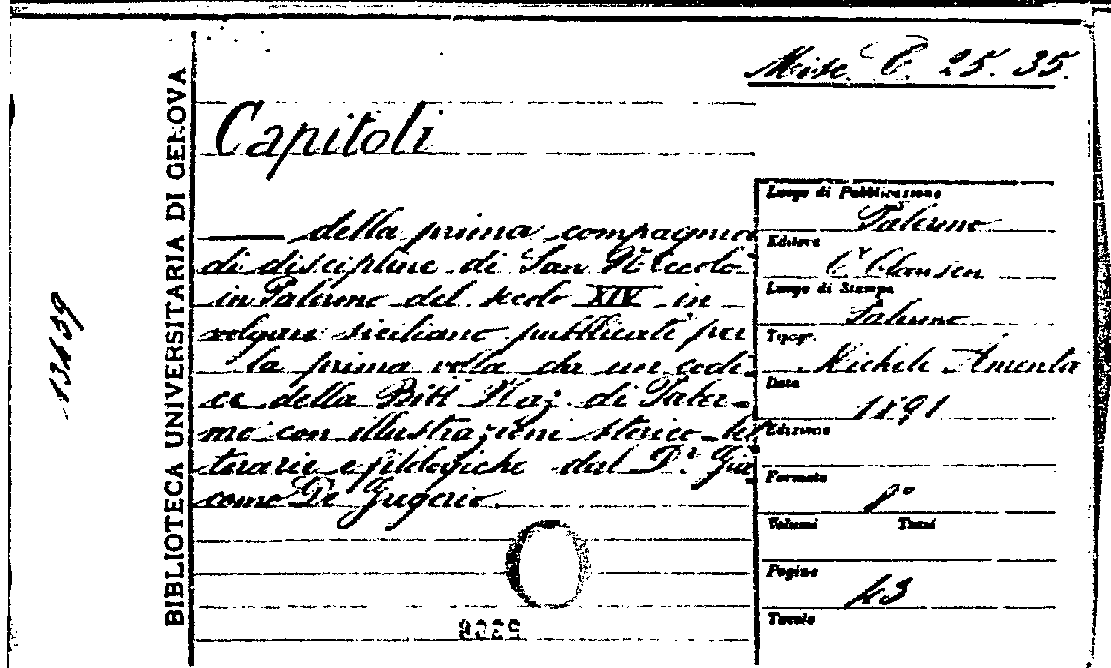 Misc. C. 25. 35.
BIBLIOTECA UNIVERSITARIA DI GENOVA
Capitoli
—— della prima compagnia
di discipline di San Niccolò
in Palermo del secolo XIV in
volgare siciliano pubblicati per
la prima volta da un codi-
ce della Bibl Naz di Paler-
mo con illustrazioni storico-let
terarie e filologiche dal Dr. Gia
como De Gregorio.
Luogo di Pubblicazione
Palermo
Editore
C Clausen
Luogo di Stampa
Palermo
Tipogr.
Michele Amenta
Data
1891
Edizione
Formato
8°
Volumi Tomi
Pagine
43
Tavole